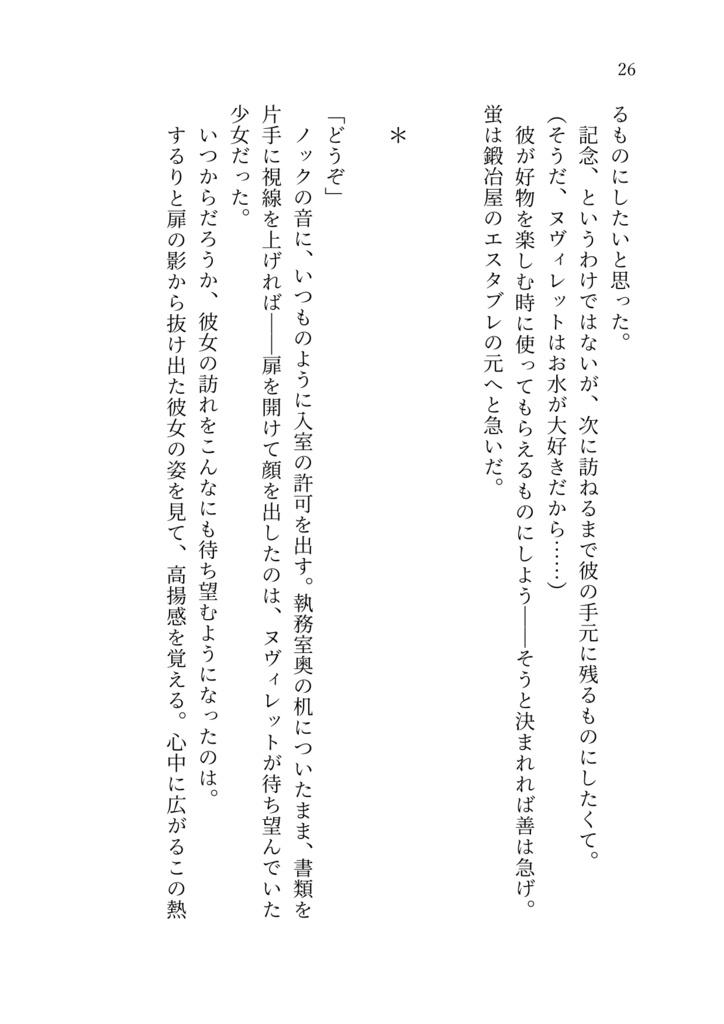 26
るものにしたいと思った。
記念、というわけではないが、次に訪ねるまで彼の手元に残るものにしたくて。
(そうだ、ヌヴィレットはお水が大好きだから……)
彼が好物を楽しむ時に使ってもらえるものにしよう――そうと決まれれば善は急げ。
蛍は鍛冶屋のエスタブレの元へと急いだ。
＊
「どうぞ」
ノックの音に、いつものように入室の許可を出す。執務室奥の机についたまま、書類を
片手に視線を上げれば――扉を開けて顔を出したのは、ヌヴィレットが待ち望んでいた
少女だった。
いつからだろうか、彼女の訪れをこんなにも待ち望むようになったのは。
するりと扉の影から抜け出た彼女の姿を見て、高揚感を覚える。心中に広がるこの熱